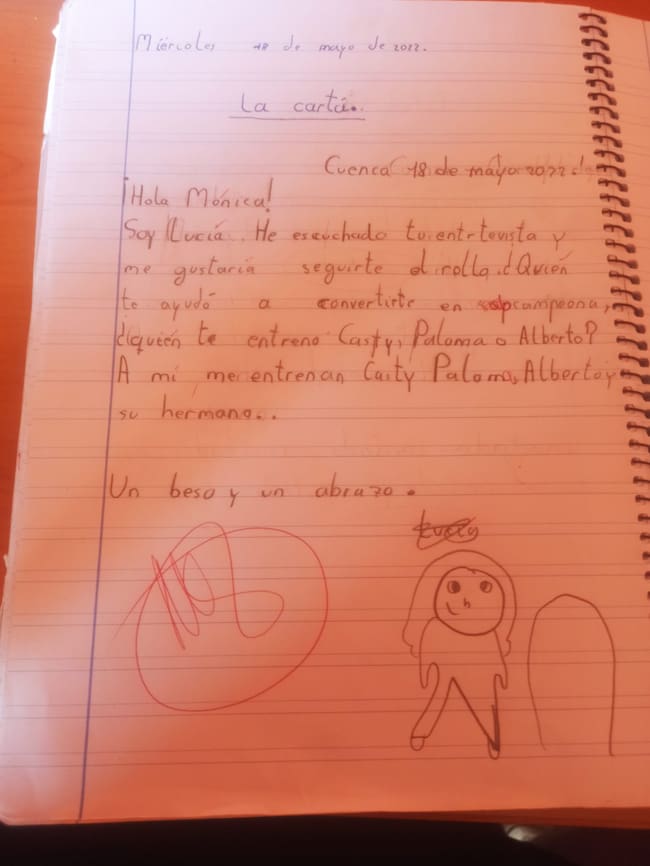 Miércoles 18 de mayo de 2022.
La carta.
Cuenca 18 de mayo 2022.
¡Hola Mónica!
Soy Lucía. He escuchado tu entrtevista y
me gustaria seguirte el rollo. ¿Quién
te ayudó a convertirte en campeona,
¿quién te entreno Casty, Paloma o Alberto?
A mi me entrenan Casty Paloma, Alberto y
su hermano..
Un beso y un abrazo.